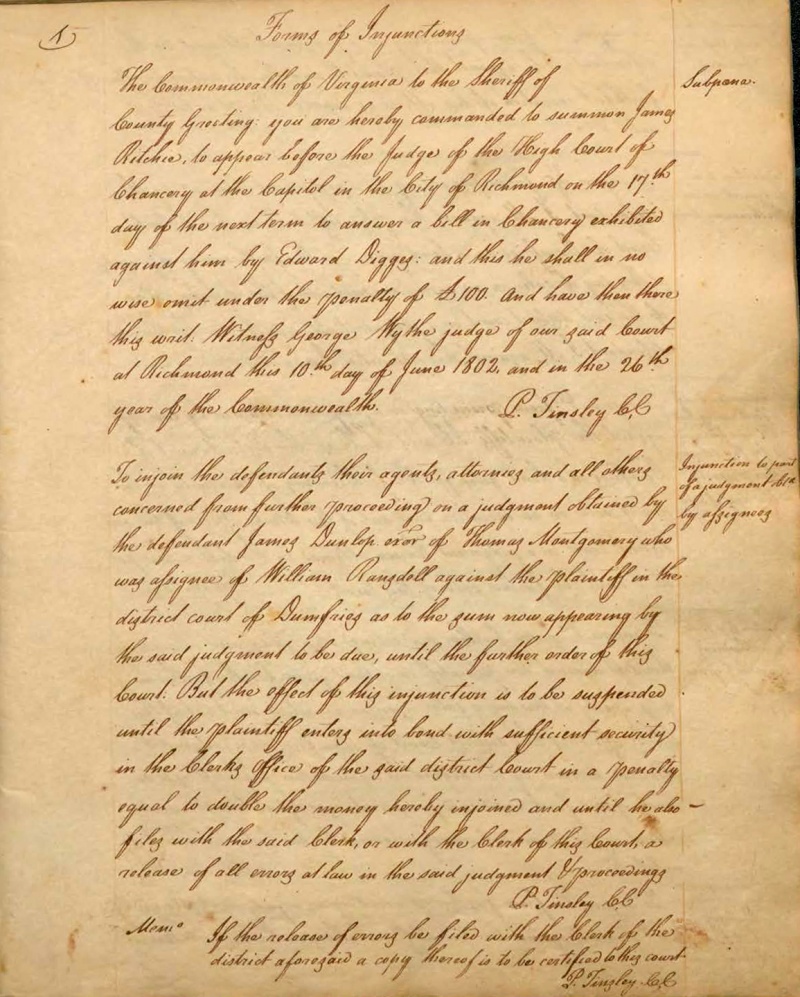 1
Forms of Injunctions
The Commonwealth of Virginia to the Sheriff of
Subpœna.
County Greeting: you are hereby commanded to summon James
Ritchie, to appear before the Judge of the High Court of
Chancery at the Capitol in the City of Richmond on the 17.th
day of the next term to answer a bill in Chancery exhibited
against him by Edward Digges: and this he shall in no
wise omit under the penalty of £100. And have then there
this writ: Witness George Wythe judge of our said Court
at Richmond this 10.th day of June 1802, and in the 26th
year of the Commonwealth.
P. Tinsley C.C
To injoin the defendants their agents, attornies and all others
Injunction to part
of a judgment
by assignees
concerned from further proceeding on a judgment obtained by
the defendant James Dunlop exōr of Thomas Montgomery who
was assignee of William Ransdell against the plaintiff in the
district court of Dumfries as to the sum now appearing by
the said judgment to be due, until the further order of this
Court. But the effect of this injunction is to be suspended
until the plaintiff enters into bond with sufficient security
in the Clerks Office of the said district Court in a penalty
equal to double the money hereby injoined and until he also –
files with the said Clerk, or with the Clerk of this Court, a
release of all errors at law in the said judgment & proceedings
P. Tinsley C.C
Memo If the release of errors be filed with the Clerk of the
district aforesaid a copy thereof is to be certified to this court.
P. Tinsley C.C